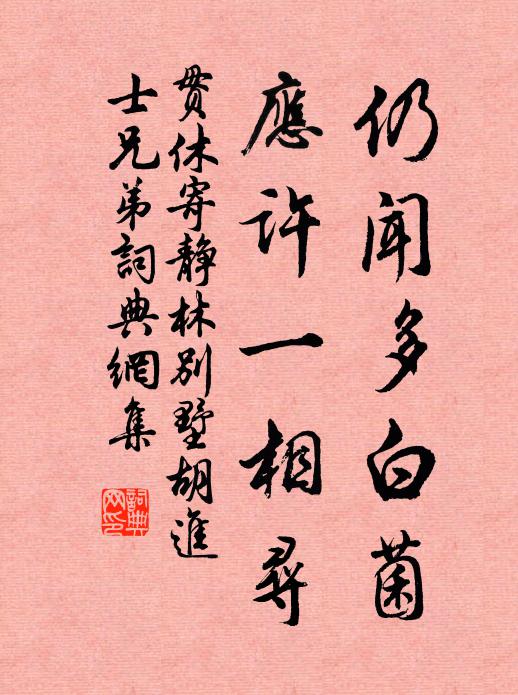 仍聞多白菌
應許一相尋
贯休寄靜林別墅胡進
士兄弟詞典網集
詞典
网印